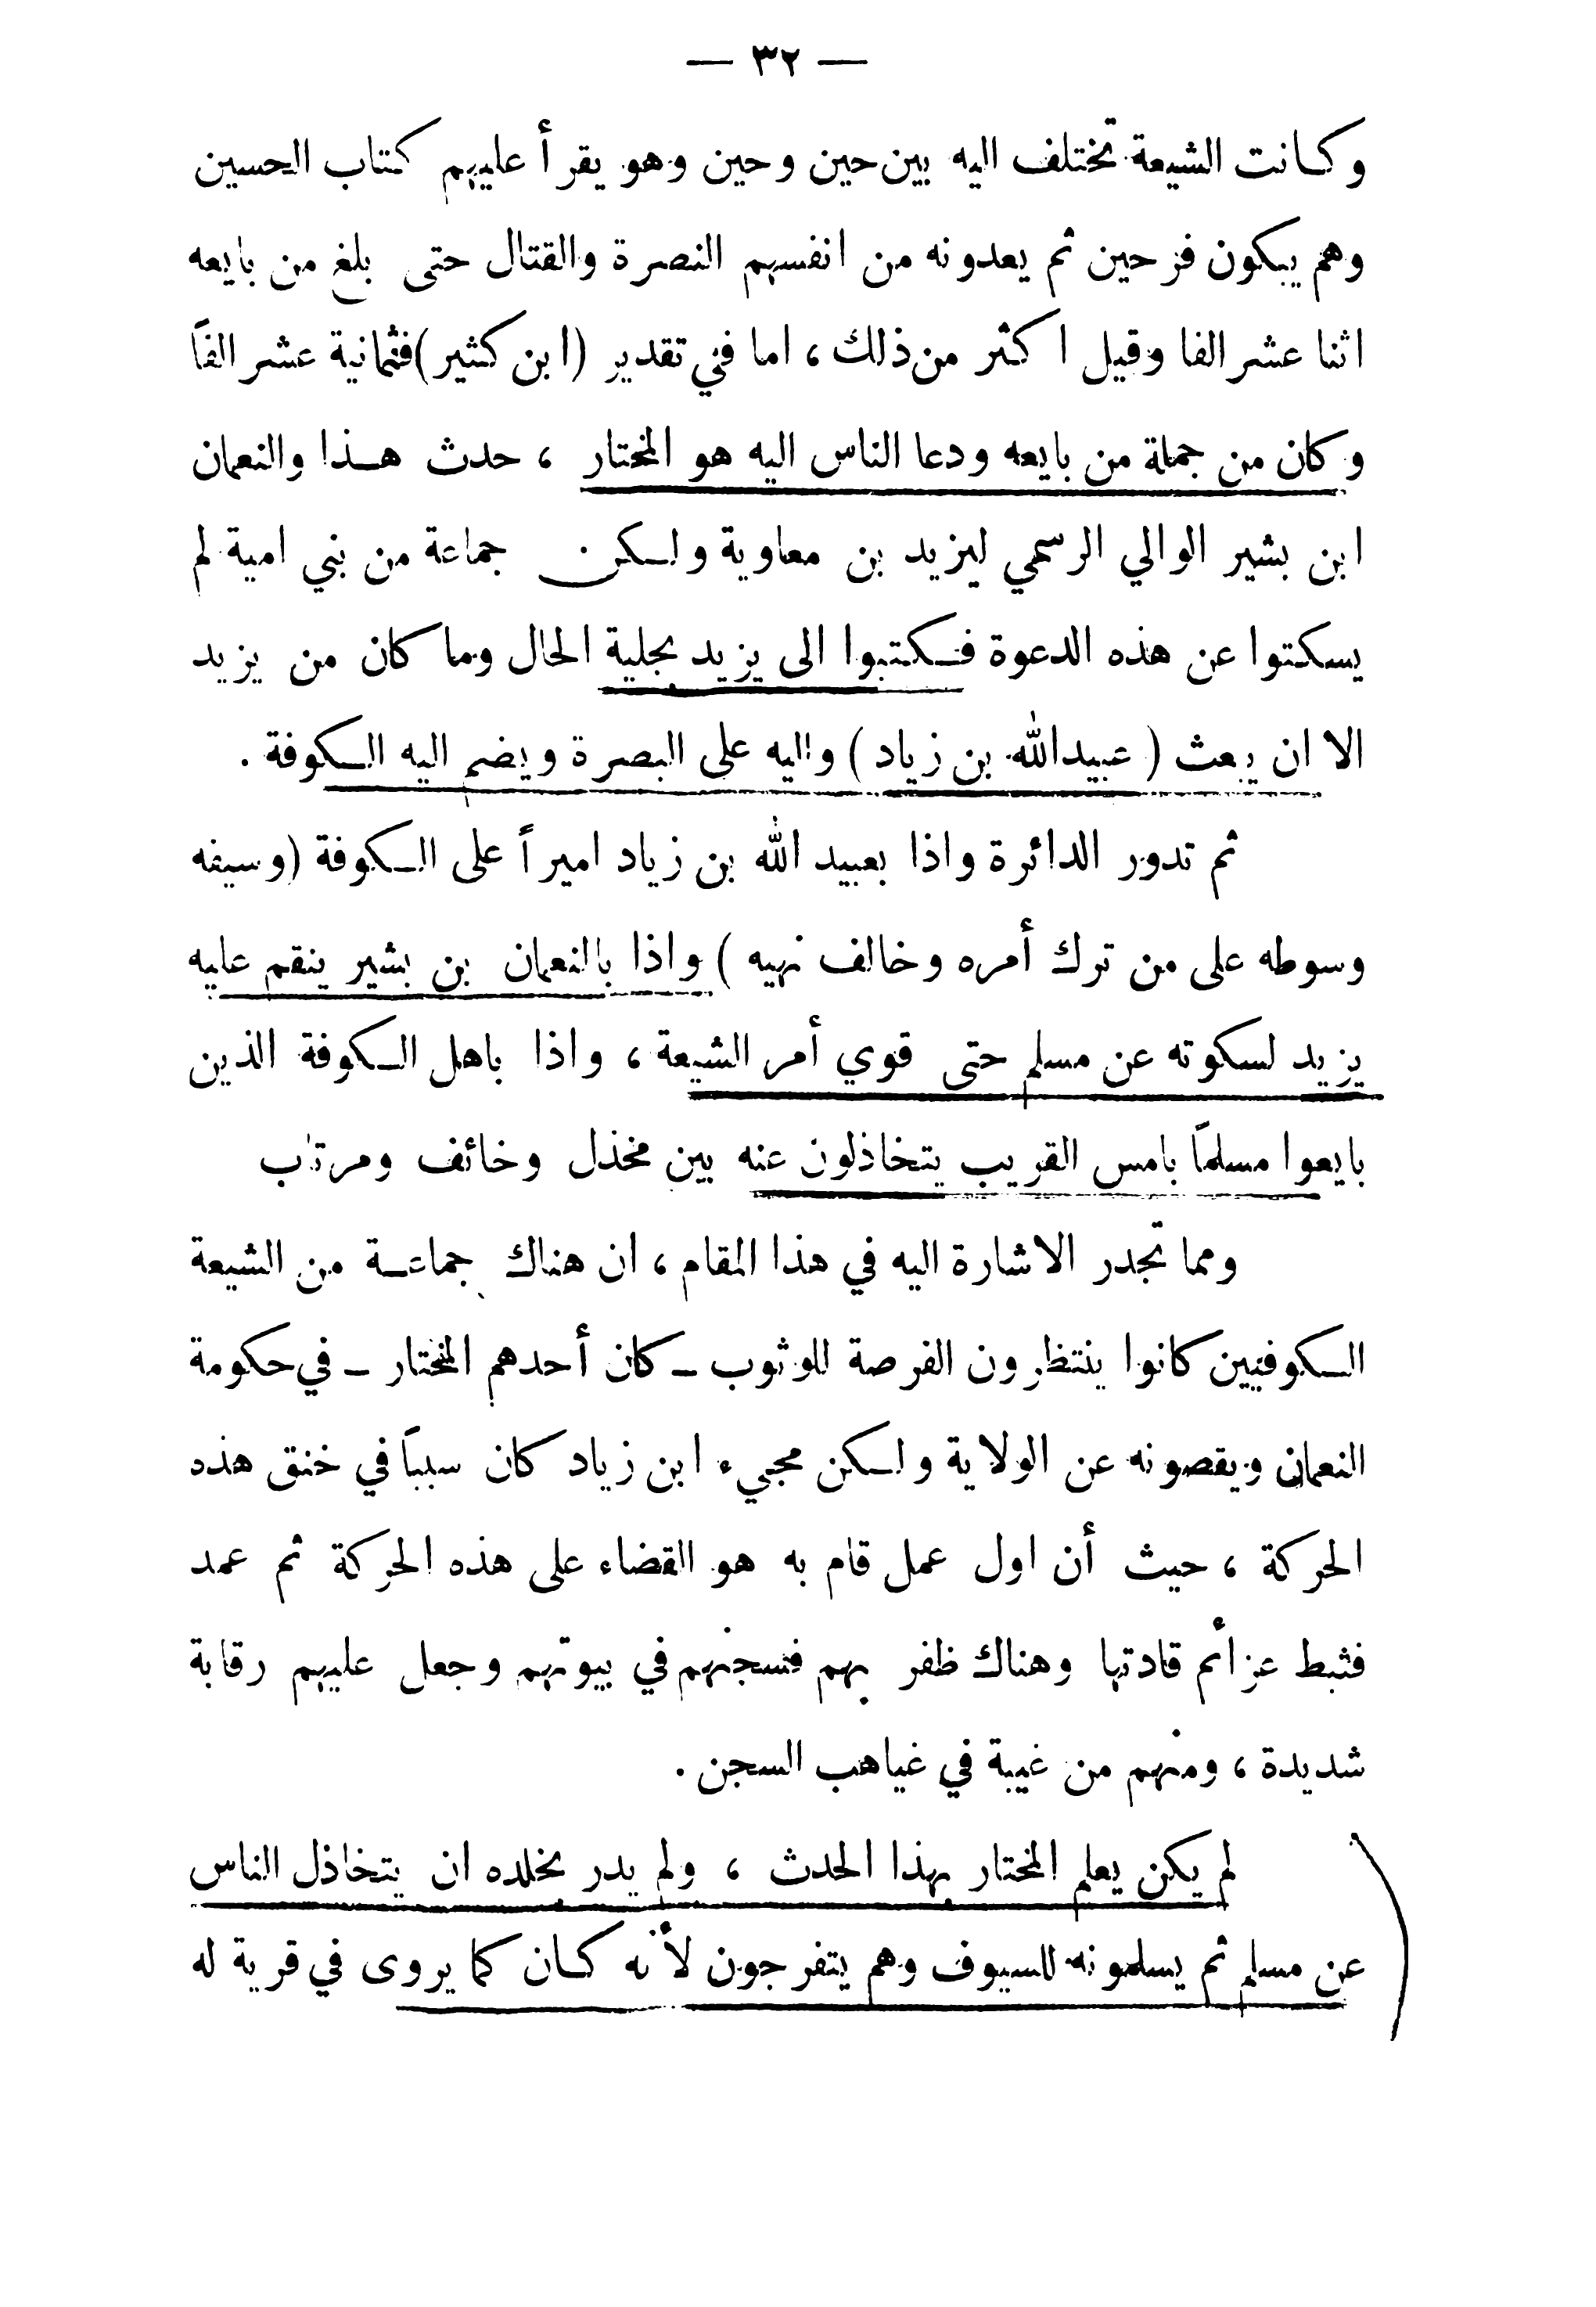 — ٣٢ —
وكانت الشيعة تختلف اليه بين حين وحين وهو يقرأ عليهم كتاب الحسين
وهم يبكون فرحين ثم يعدونه من انفسهم النصرة والقتال حتى بلغ من بايعه
اثنا عشر الفا وقيل اكثر من ذلك ، اما في تقدير (ابن كثير) فثمانية عشر الفاً
وكان من جملة من بايعه ودعا الناس اليه هو المختار ، حدث هذا والنعمان
ابن بشير الوالي الرسمي ليزيد بن معاوية ولكن جماعة من بني امية لم
يسكتوا عن هذه الدعوة فكتبوا الى يزيد بجلية الحال وما كان من يزيد
الا ان يبعث ( عبيدالله بن زياد ) واليه على البصرة ويضم اليه الكوفة .
ثم تدور الدائرة واذا بعبيد الله بن زياد اميراً على الكوفة (وسيفه
وسوطه على من ترك أمره وخالف نهيه ) واذا بالنعمان بن بشير ينقم عليه
يزيد لسكوته عن مسلم حتى قوي أمر الشيعة ، واذا باهل الكوفة الذين
بايعوا مسلماً بامس القريب يتخاذلون عنه بين مخذل وخائف ومرتاب
ومما تجدر الاشارة اليه في هذا المقام ، ان هناك جماعة من الشيعة
الكوفيين كانوا ينتظرون الفرصة للوثوب ــ كان أحدهم المختار ــ في حكومة
النعمان ويقصونه عن الولاية ولكن مجيء ابن زياد كان سبباً في خنق هذه
الحركة ، حيث أن اول عمل قام به هو القضاء على هذه الحركة ثم عمد
فثبط عزائم قادتها وهناك ظفر بهم فسجنهم في بيوتهم وجعل عليهم رقابة
شديدة ، ومنهم من غيبة في غياهب السجن .
لم يكن يعلم المختار بهذا الحدث ، ولم يدر بخلده ان يتخاذل الناس
عن مسلم ثم يسلمونه للسيوف وهم يتفرجون لأنه كان كما يروى في قرية له